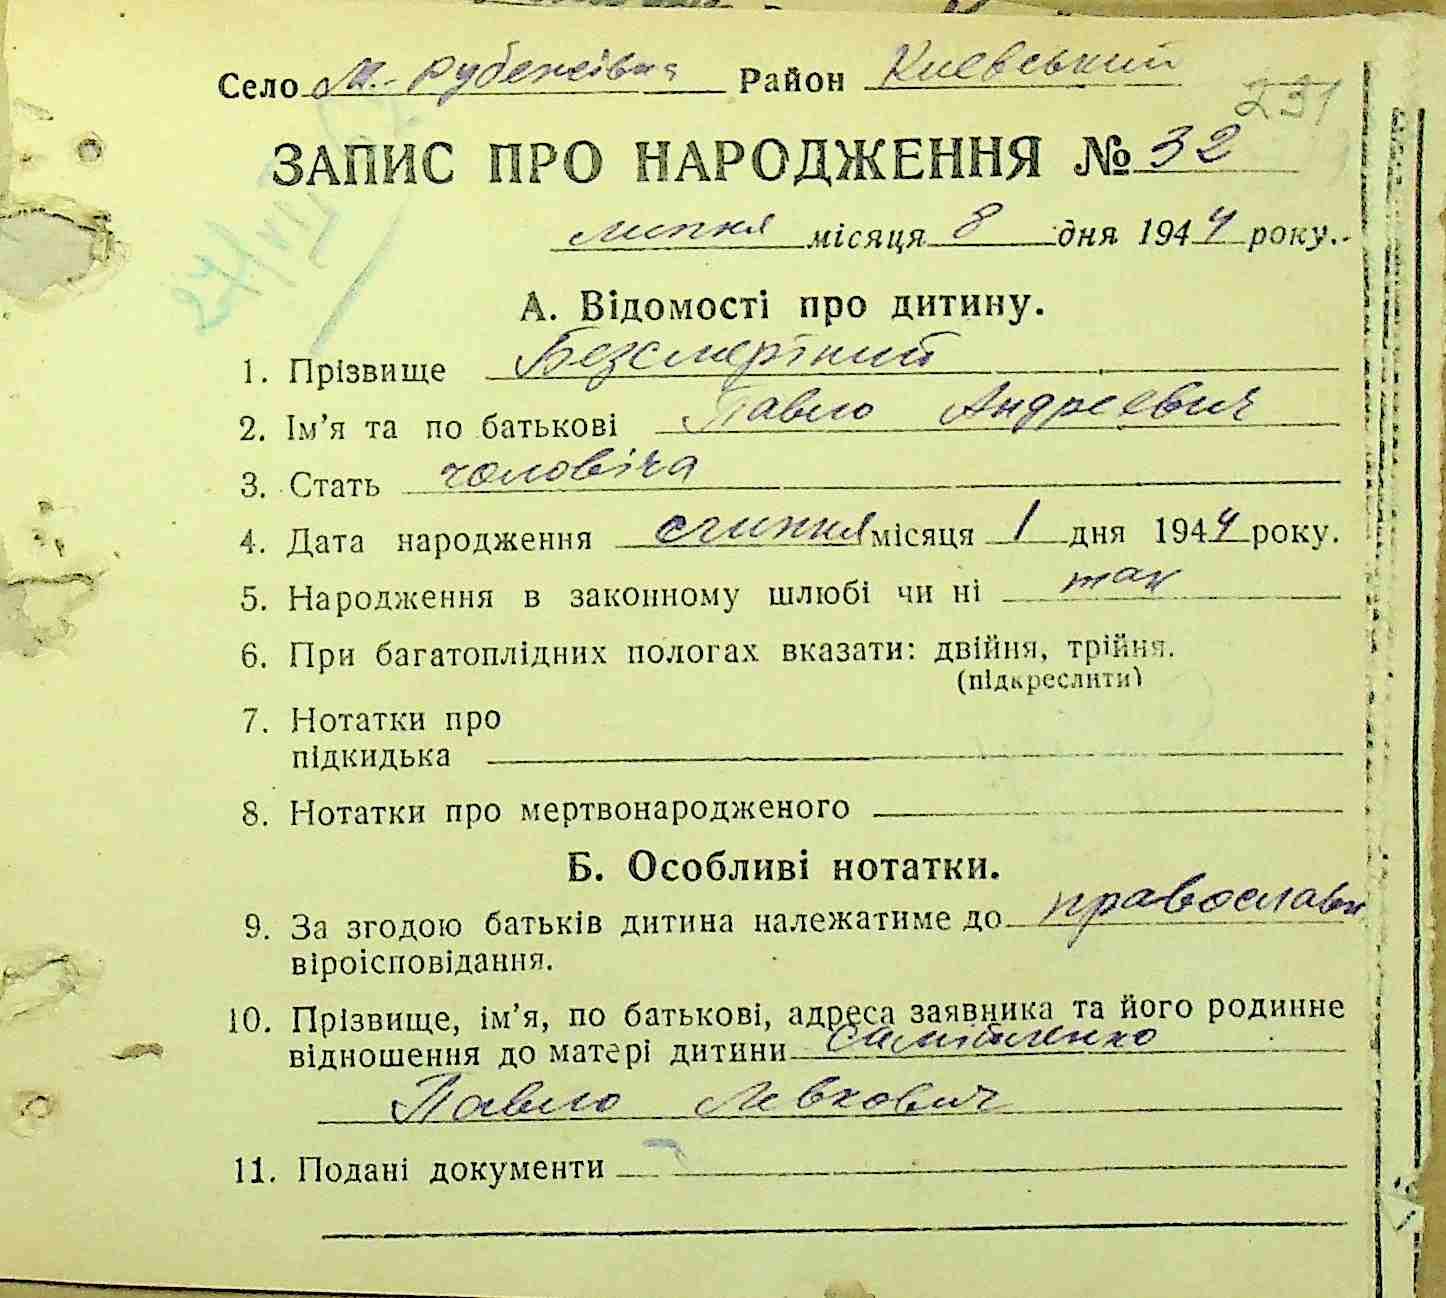 Село М.-Рубежівка Район Киевський
231
ЗАПИС ПРО НАРОДЖЕННЯ № 32
липня місяця 8 дня 1944 року.
А. Відомості про дитину.
1. Прізвище Безсмертний
2. Ім’я та по батькові Павло Андреевич
3. Стать чоловіча
4. Дата народження липня місяця 1 дня 1944 року.
5. Народження в законному шлюбі чи ні так
6. При багатоплідних пологах вказати: двійня, трійня.
(підкреслити)
7. Нотатки про
підкидька
8. Нотатки про мертвонародженого
Б. Особливі нотатки.
9. За згодою батьків дитина належатиме до православн
віроісповідання.
10. Прізвище, ім’я, по батькові, адреса заявника та його родинне
відношення до матері дитини Самійленко
Павло Левкович
11. Подані документи